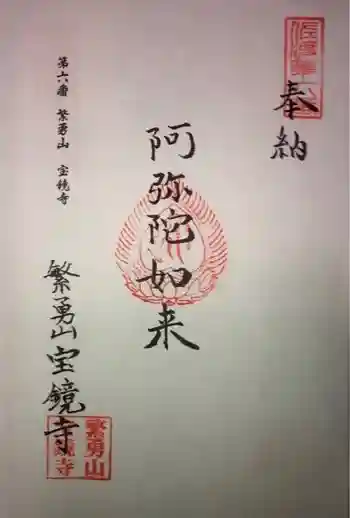 奉納
阿弥陀如来
第六番 繁勇山 宝鏡寺
繁勇山宝鏡寺
繁勇山
宝鏡寺